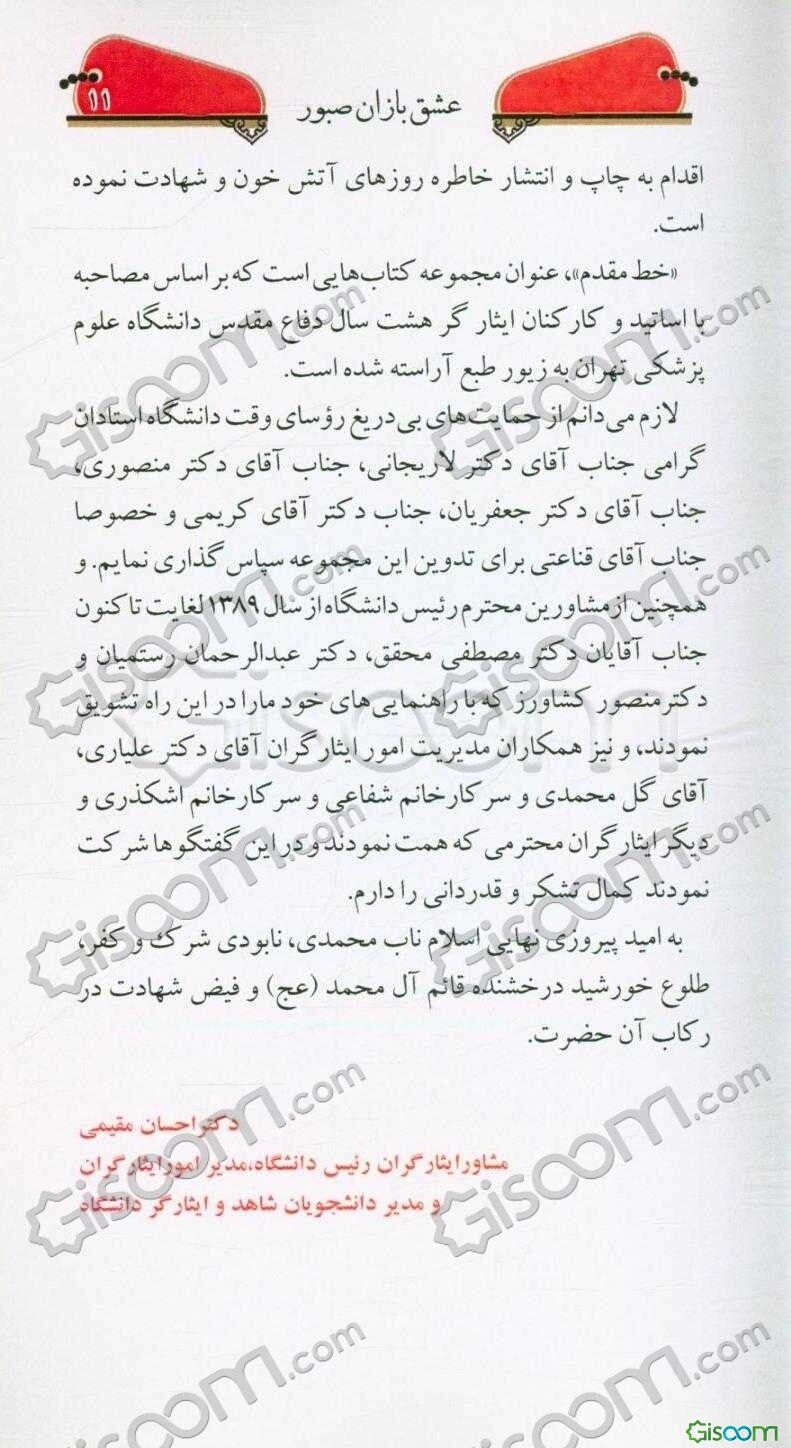 عشق بازان صبور
۱۱
اقدام به چاپ و انتشار خاطره روزهای آتش خون و شهادت نموده
است.
«خط مقدم»، عنوان مجموعه کتاب‌هایی است که بر اساس مصاحبه
با اساتید و کارکنان ایثار گر هشت سال دفاع مقدس دانشگاه علوم
پزشکی تهران به زیور طبع آراسته شده است.
لازم می‌دانم از حمایت‌های بی‌دریغ رؤسای وقت دانشگاه استادان
گرامی جناب آقای دکتر لاریجانی، جناب آقای دکتر منصوری،
جناب آقای دکتر جعفریان، جناب دکتر آقای کریمی و خصوصا
جناب آقای قناعتی برای تدوین این مجموعه سپاس گذاری نمایم. و
همچنین از مشاورین محترم رئیس دانشگاه از سال ۱۳۸۹ لغایت تاکنون
جناب آقایان دکتر مصطفی محقق، دکتر عبدالرحمان رستمیان و
دکتر منصور کشاورز که با راهنمایی‌های خود مارا در این راه تشویق
نمودند، و نیز همکاران مدیریت امور ایثارگران آقای دکتر علیاری،
آقای گل محمدی و سرکارخانم شفاعی و سرکارخانم اشکذری و
دیگر ایثارگران محترمی که همت نمودند و در این گفتگوها شرکت
نمودند کمال تشکر و قدردانی را دارم.
به امید پیروزی نهایی اسلام ناب محمدی، نابودی شرک و کفر،
طلوع خورشید درخشنده قائم آل محمد (عج) و فیض شهادت در
رکاب آن حضرت.
دکتر احسان مقیمی
مشاور ایثارگران رئیس دانشگاه، مدیر امور ایثارگران
و مدیر دانشجویان شاهد و ایثارگر دانشگاه
Gisoom.com
Gisoom.com
Gisoom.com
Gisoom.com
Gisoom
Gisoom.com
Gisoom.com
Gisoom.com
Gisoom.com
Gisoom.com
Gisoom.com
Gisoom